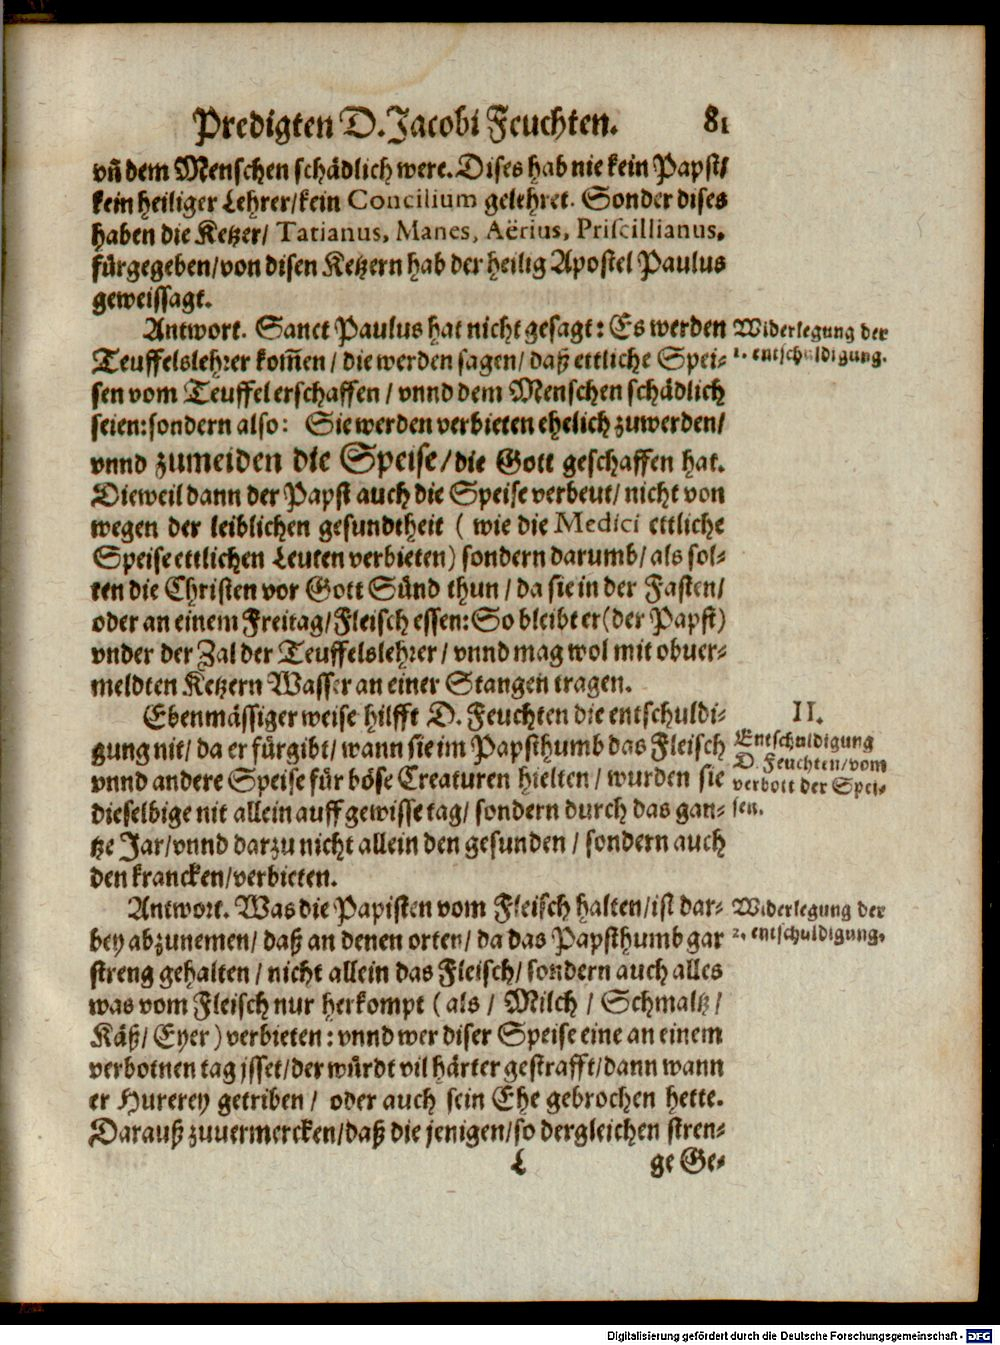 Predigten D. Jacobi Feuchten. 81
vñ dem Menschen schädlich were. Dises hab nie kein Papst/
kein heiliger Lehrer/kein Concilium gelehret. Sonder dises
haben die Ketzer/ Tatianus, Manes, Aërius, Priscillianus,
fürgegeben/von disen Ketzern hab der heilig Apostel Paulus
geweissagt.
Antwort. Sanct Paulus hat nicht gesagt: Es werden
Teuffelslehrer kom̃en/ die werden sagen/ daß ettliche Spei-
sen vom Teuffel erschaffen/ vnnd dem Menschen schädlich
seien: sondern also: Sie werden verbieten ehelich zuwerden/
vnnd zumeiden die Speise/die Gott geschaffen hat.
Dieweil dann der Papst auch die Speise verbeut/ nicht von
wegen der leiblichen gesundtheit ( wie die Medici ettliche
Speise ettlichen Leuten verbieten) sondern darumb/ als sol-
ten die Christen vor Gott Sünd thun/ da sie in der Fasten/
oder an einem Freitag/ Fleisch essen: So bleibt er (der Papst)
vnder der Zal der Teuffelslehrer/ vnnd mag wol mit obuer-
meldten Ketzern Wasser an einer Stangen tragen.
Ebenmässiger weise hilfft D. Feuchten die entschuldi-
gung nit/ da er fürgibt/ wann sie im Papsthumb das Fleisch
vnnd andere Speise für böse Creaturen hielten/ wurden sie
dieselbige nit allein auff gewisse tag/ sondern durch das gan-
tze Jar/vnnd darzu nicht allein den gesunden/ sondern auch
den krancken/verbieten.
Antwort. Was die Papisten vom Fleisch halten/ist dar-
bey abzunemen/ daß an denen orten/ da das Papsthumb gar
streng gehalten/ nicht allein das Fleisch/ sondern auch alles
was vom Fleisch nur herkompt ( als/ Milch/ Schmaltz/
Käß/ Eyer ) verbieten: vnnd wer diser Speise eine an einem
verbotnen tag jsset/der würdt vil härter gestrafft/dann wann
er Hurerey getriben/ oder auch sein Ehe gebrochen hette.
Darauß zuuermercken/daß die jenigen/so dergleichen stren-
L ge Ge-
Widerlegung der
1. entschuldigung.
II.
Entschuldigung
D. Feuchten/vom
verbott der Spei-
sen.
Widerlegung der
2. entschuldigung.
Digitalisierung gefördert durch die Deutsche Forschungsgemeinschaft - DFG